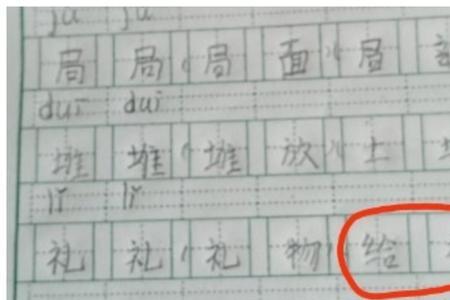 jú jú
局 局(局 面)(局
duī duī
堆 堆(堆 放)(土
lǐ lǐ
礼 礼(礼 物)(给